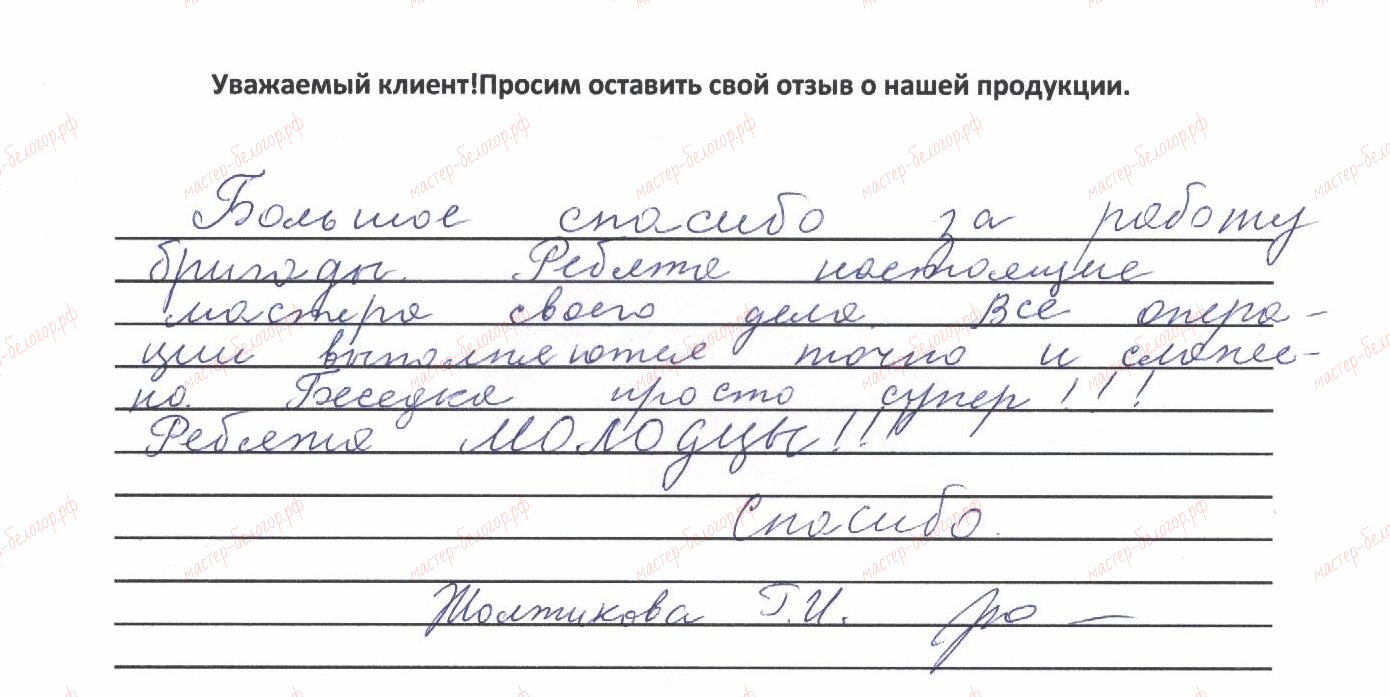 Уважаемый клиент!Просим оставить свой отзыв о нашей продукции.
Большое спасибо за работу
бригады. Ребята настоящие
мастера своего дела. Все опера-
ции выполняются точно и слажен-
но. Беседка просто супер!!!
Ребята МОЛОДЦЫ!!!
Спасибо.
Г.И.
мастер-белогор.рф